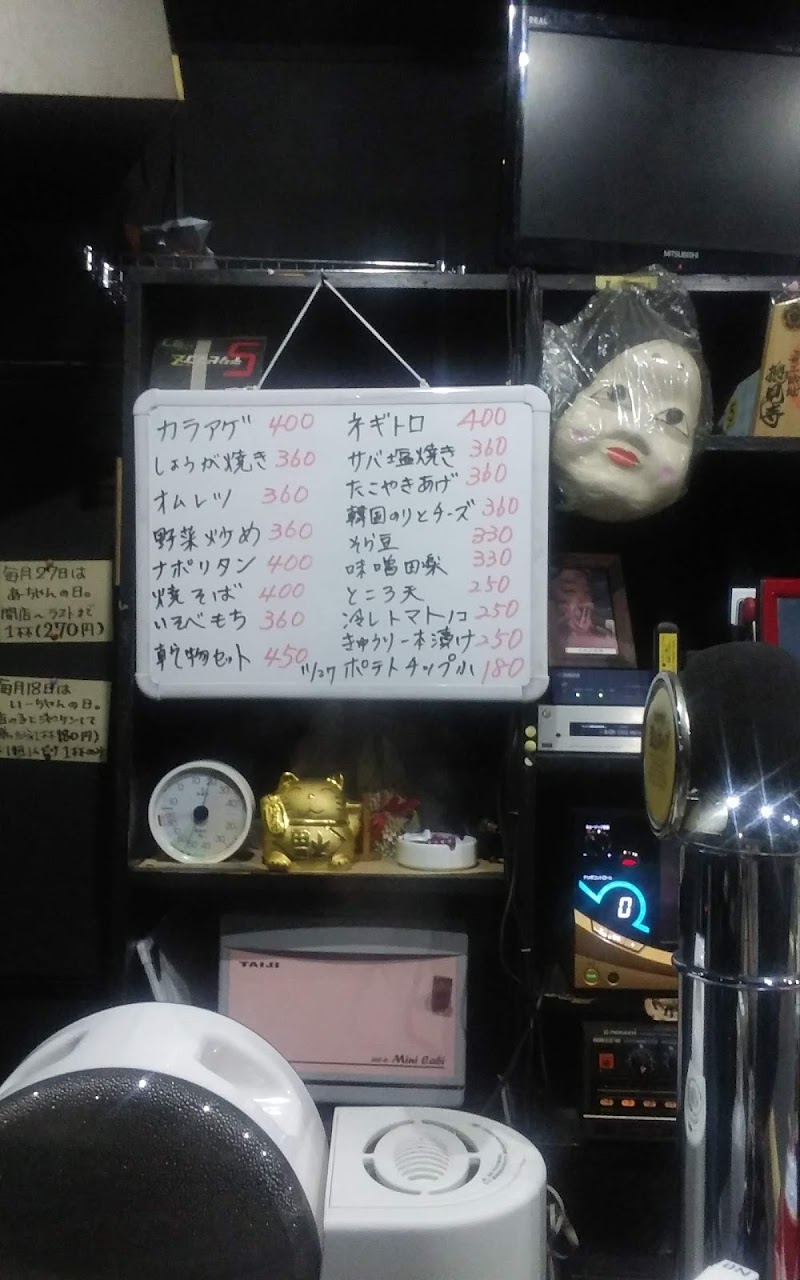 REAL
MITSUBISHI
カラアゲ 400
しょうが焼き 360
オムレツ 360
野菜炒め 360
ナポリタン 400
焼そば 400
いそべもち 360
乾物セット 450
ネギトロ 400
サバ塩焼き 360
たこやきあげ 360
韓国のりとチーズ 360
そら豆 330
味噌田楽 330
ところ天 250
冷しトマト 250
きゅうり一本漬け 250
ポテトチップ小 180
毎月27日は
あーちゃんの日。
開店〜ラストまで
1杯(270円)
毎月18日は
いーちゃんの日。
TAIJI
Mini Cabi
0